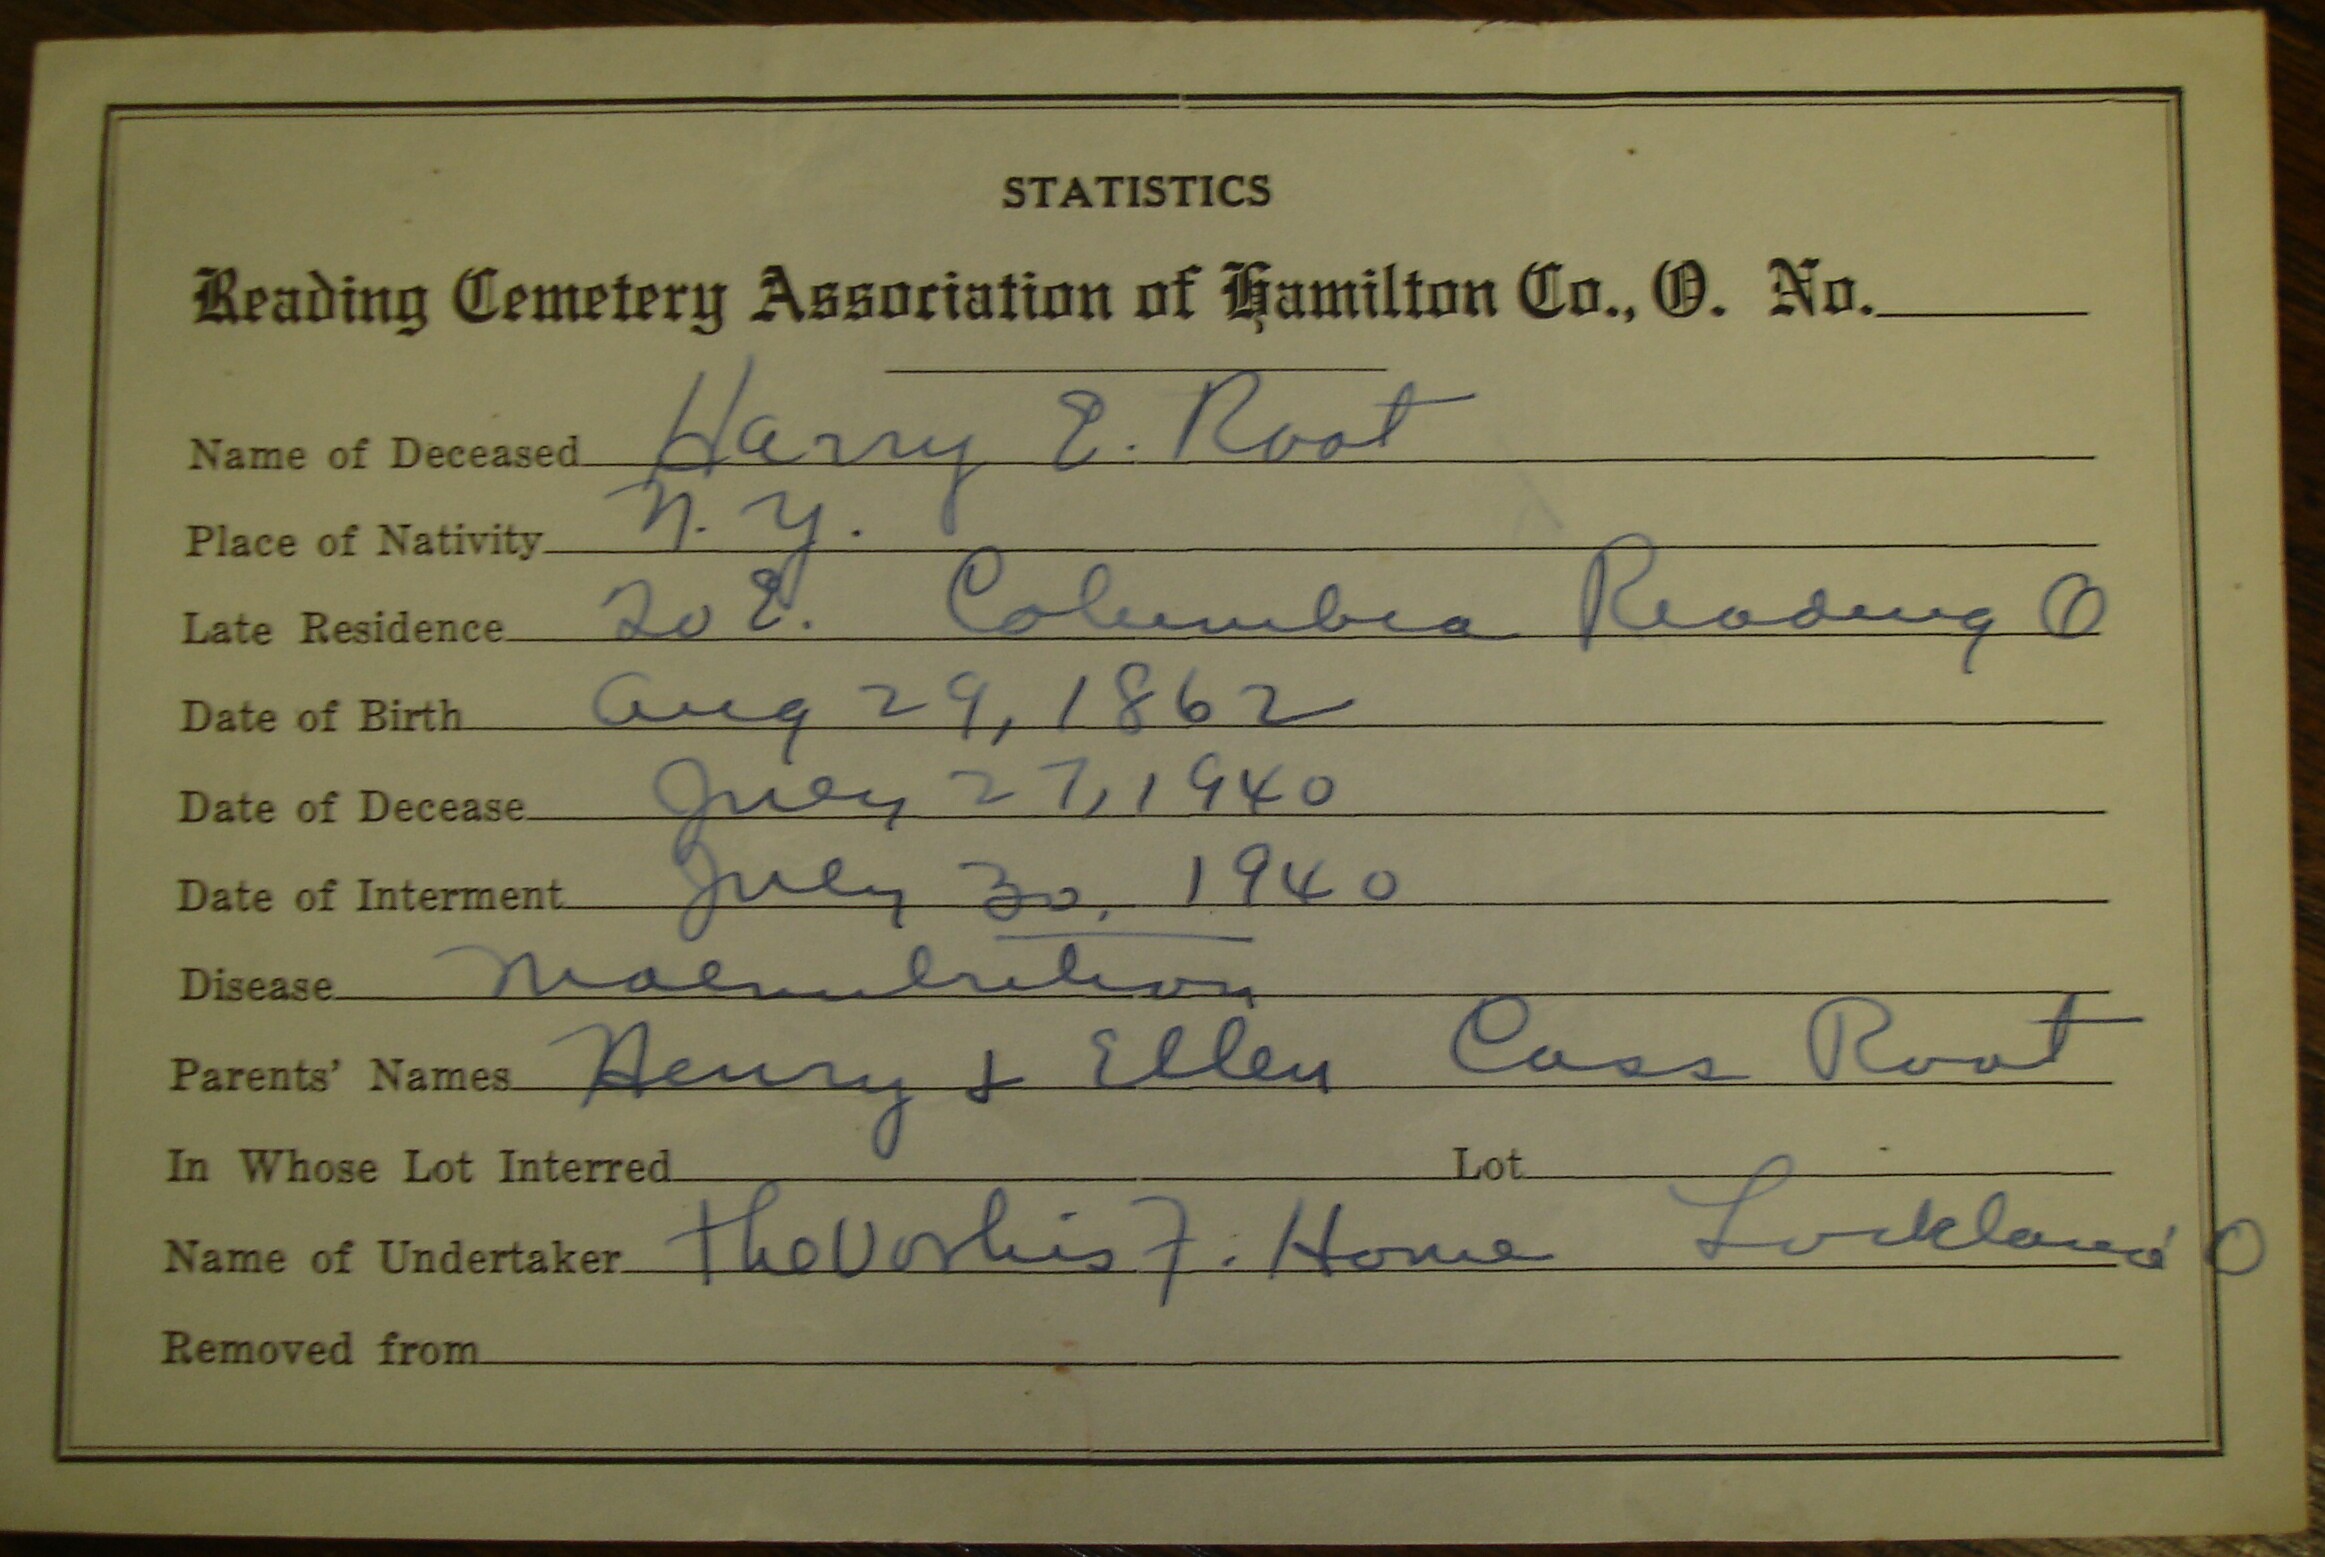 STATISTICS
Reading Cemetery Association of Hamilton Co., O. No.
Name of Deceased Harry E. Root
Place of Nativity N. Y.
Late Residence 20 E. Columbia Reading O
Date of Birth Aug 29, 1862
Date of Decease July 27, 1940
Date of Interment July 30, 1940
Disease Malnutrition
Parents' Names Henry & Ellen Cass Root
In Whose Lot Interred Lot
Name of Undertaker The Vorhis F. Home Lockland O
Removed from